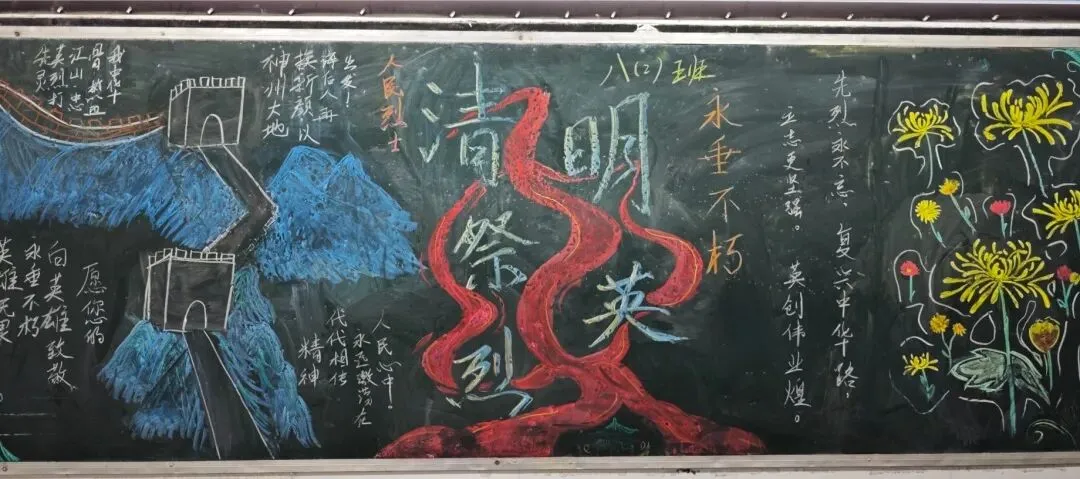 八(2)班
人民烈士
永垂不朽
清明
祭英
烈
我中华
江山,忠
英烈打
先灵
出发!
后人再
换新颜以
神州大地
愿您的
向英雄致敬,
永垂不朽
英雄无畏
人民心中。
永远激荡在
代代相传
精神
先烈永不忘,复兴中华路,
志更坚强。 英创伟业煌。